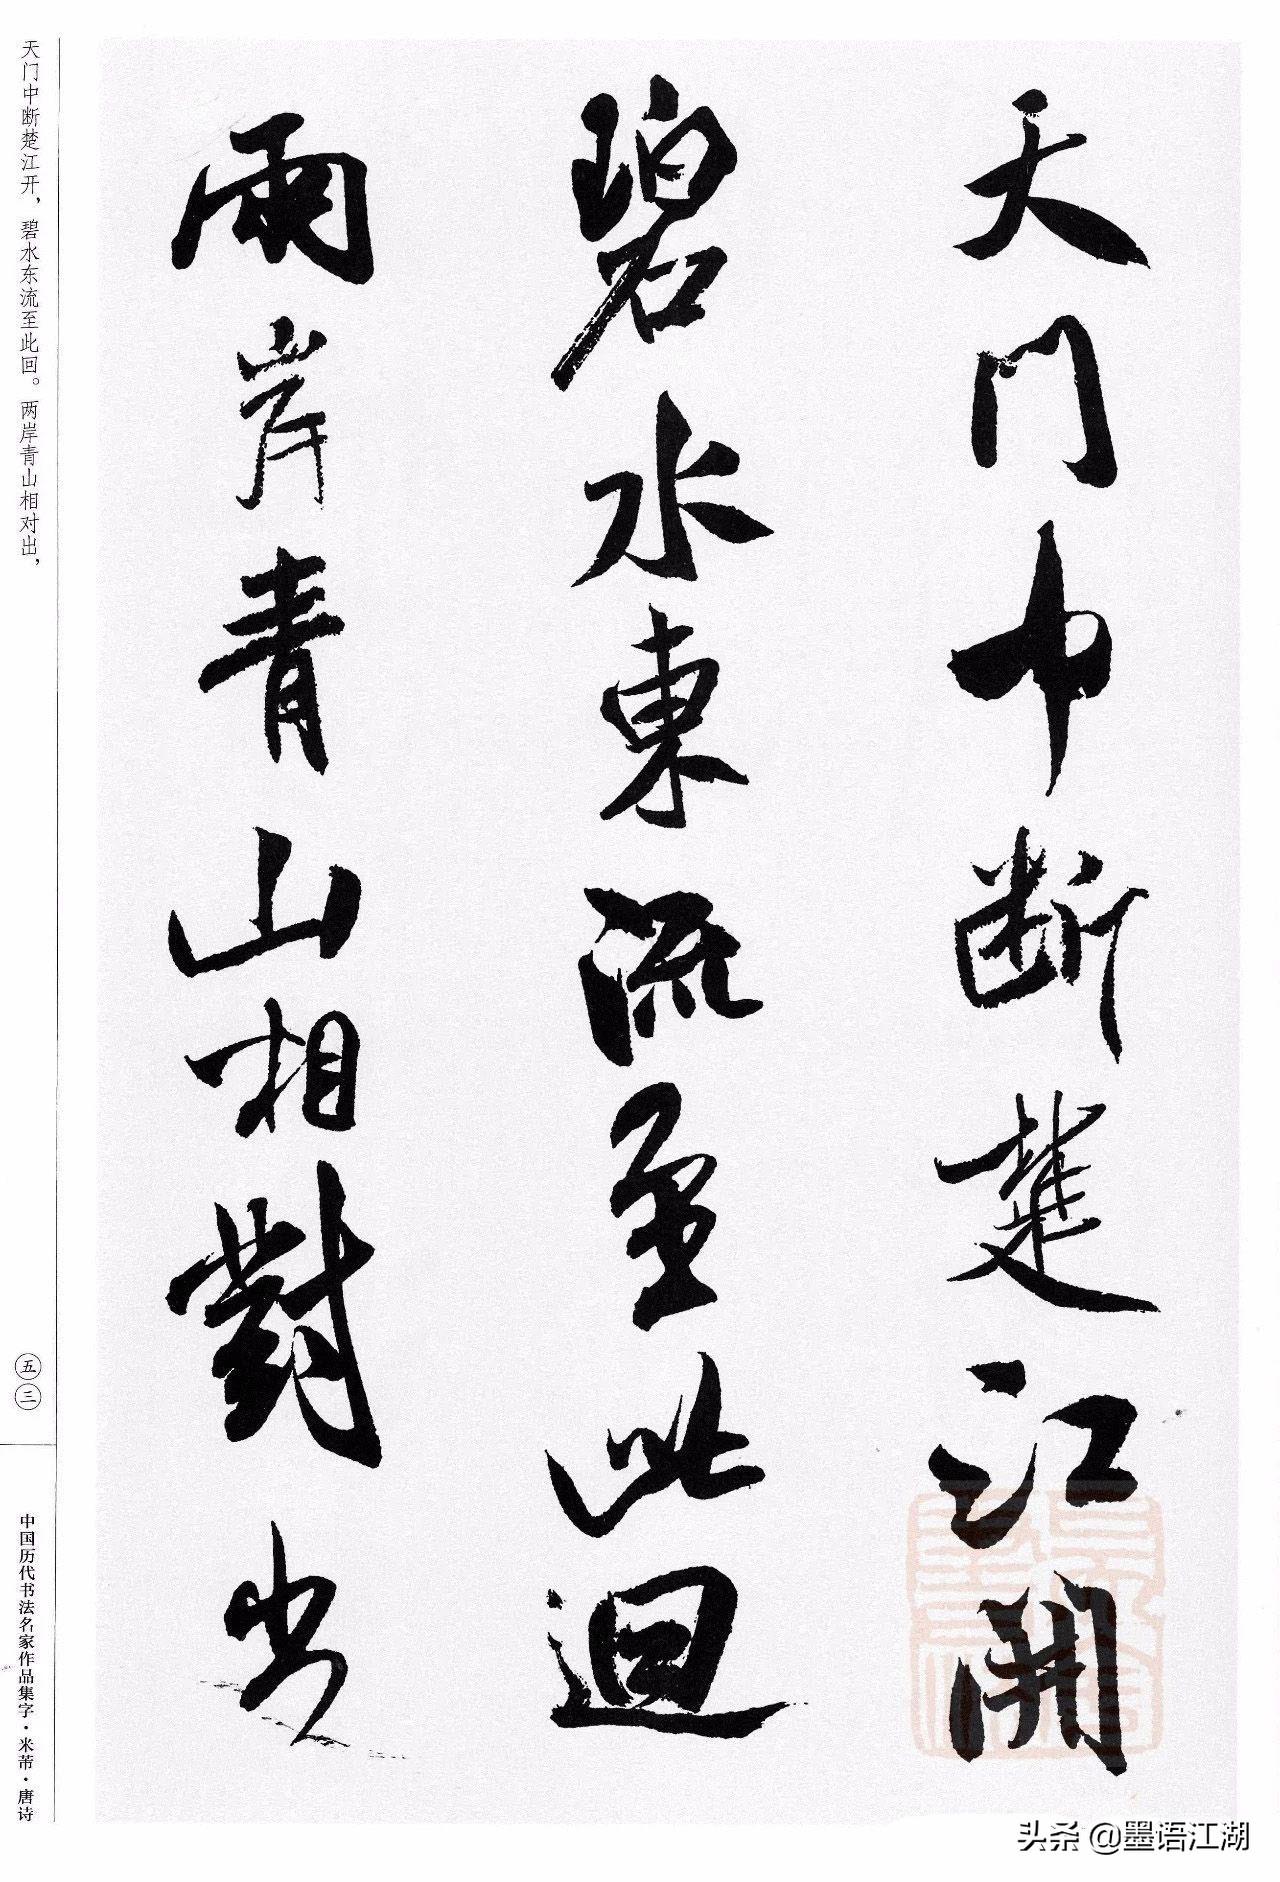 天門中断楚江開
碧水東流至此迴
兩岸青山相對出
天门中断楚江开，碧水东流至此回。两岸青山相对出，
五三
中国历代书法名家作品集字·米芾·唐诗
头条 @墨语江湖